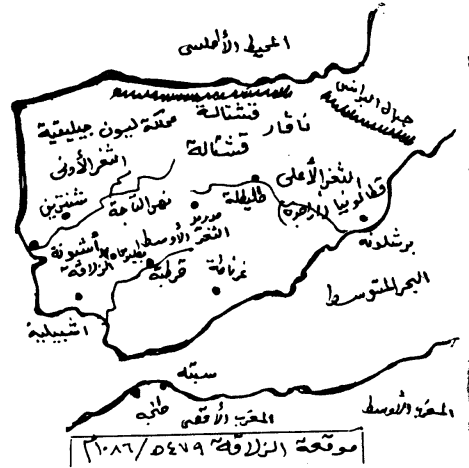 المحيط الأطلسي
جبال البرانس
قشتالة
مملكة ليون جيليقية
ناڤار
قشتالة
الثغر الأدنى
الثغر الأعلى
قطالونيا
شنترين
نهر التاجة
طليطلة
برشلونة
مدريد
الثغر الأوسط
أشبونة
الزلاقة
قرطبة
غرناطة
البحر المتوسط
اشبيلية
سبته
طنجه
المغرب الأقصى
المغرب الأوسط
موقعة الزلاقة ٤٧٩ه/١٠٨٦م